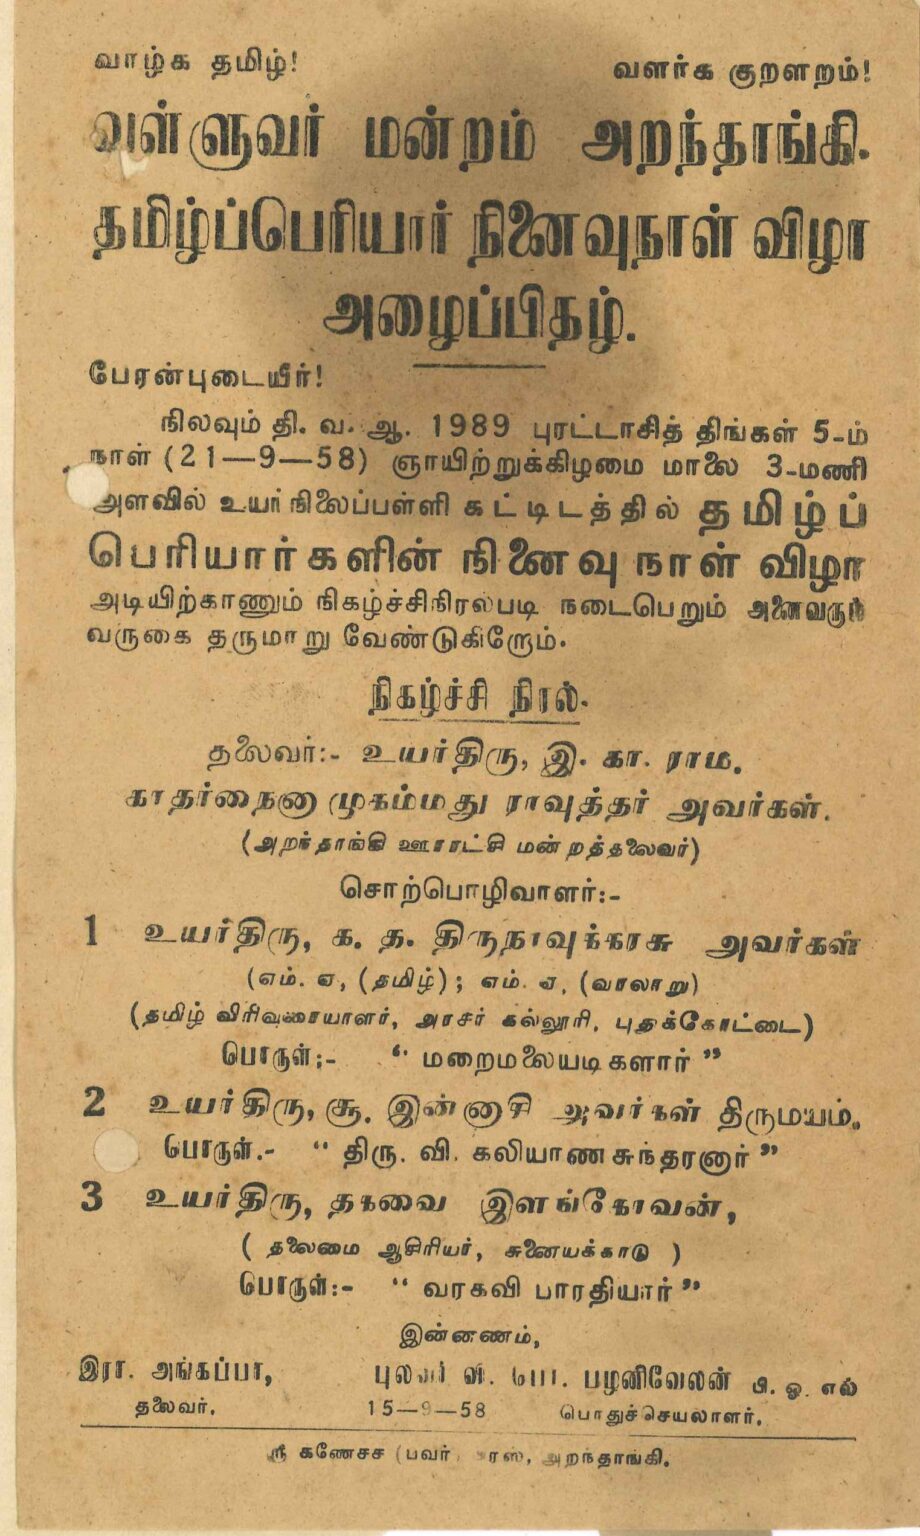 வாழ்க தமிழ்! வளர்க குறளறம்!
வள்ளுவர் மன்றம் அறந்தாங்கி.
தமிழ்ப்பெரியார் நினைவுநாள் விழா
அழைப்பிதழ்.
பேரன்புடையீர்!
நிலவும் தி. வ. ஆ. 1989 புரட்டாசித் திங்கள் 5-ம்
நாள் (21—9—58) ஞாயிற்றுக்கிழமை மாலை 3-மணி
அளவில் உயர்நிலைப்பள்ளி கட்டிடத்தில் தமிழ்ப்
பெரியார்களின் நினைவு நாள் விழா
அடியிற்காணும் நிகழ்ச்சிநிரல்படி நடைபெறும் அனைவரும்
வருகை தருமாறு வேண்டுகிறோம்.
நிகழ்ச்சி நிரல்.
தலைவர்:- உயர்திரு, இ. கா. ராம.
காதர்நைனா முகம்மது ராவுத்தர் அவர்கள்.
(அறந்தாங்கி ஊராட்சி மன்றத்தலைவர்)
சொற்பொழிவாளர்:-
1 உயர்திரு, க. த. திருநாவுக்கரசு அவர்கள்
(எம். ஏ, (தமிழ்); எம். ஏ, (வரலாறு)
(தமிழ் விரிவுரையாளர், அரசர் கல்லூரி, புதுக்கோட்டை)
பொருள்:- “ மறைமலையடிகளார் ”
2 உயர்திரு, சூ. இன்னாசி அவர்கள் திருமயம்.
பொருள்.- “ திரு. வி. கலியாணசுந்தரனார் ”
3 உயர்திரு, தகவை இளங்கோவன்,
( தலைமை ஆசிரியர், சுனையக்காடு )
பொருள்:- “ வரகவி பாரதியார் ”
இன்னணம்,
இரா. அங்கப்பா, புலவர் வி. பொ. பழனிவேலன் பி. ஓ. எல்
தலைவர். 15—9—58 பொதுச்செயலாளர்.
ஸ்ரீ கணேசச (பவர் அறந்தாங்கி.